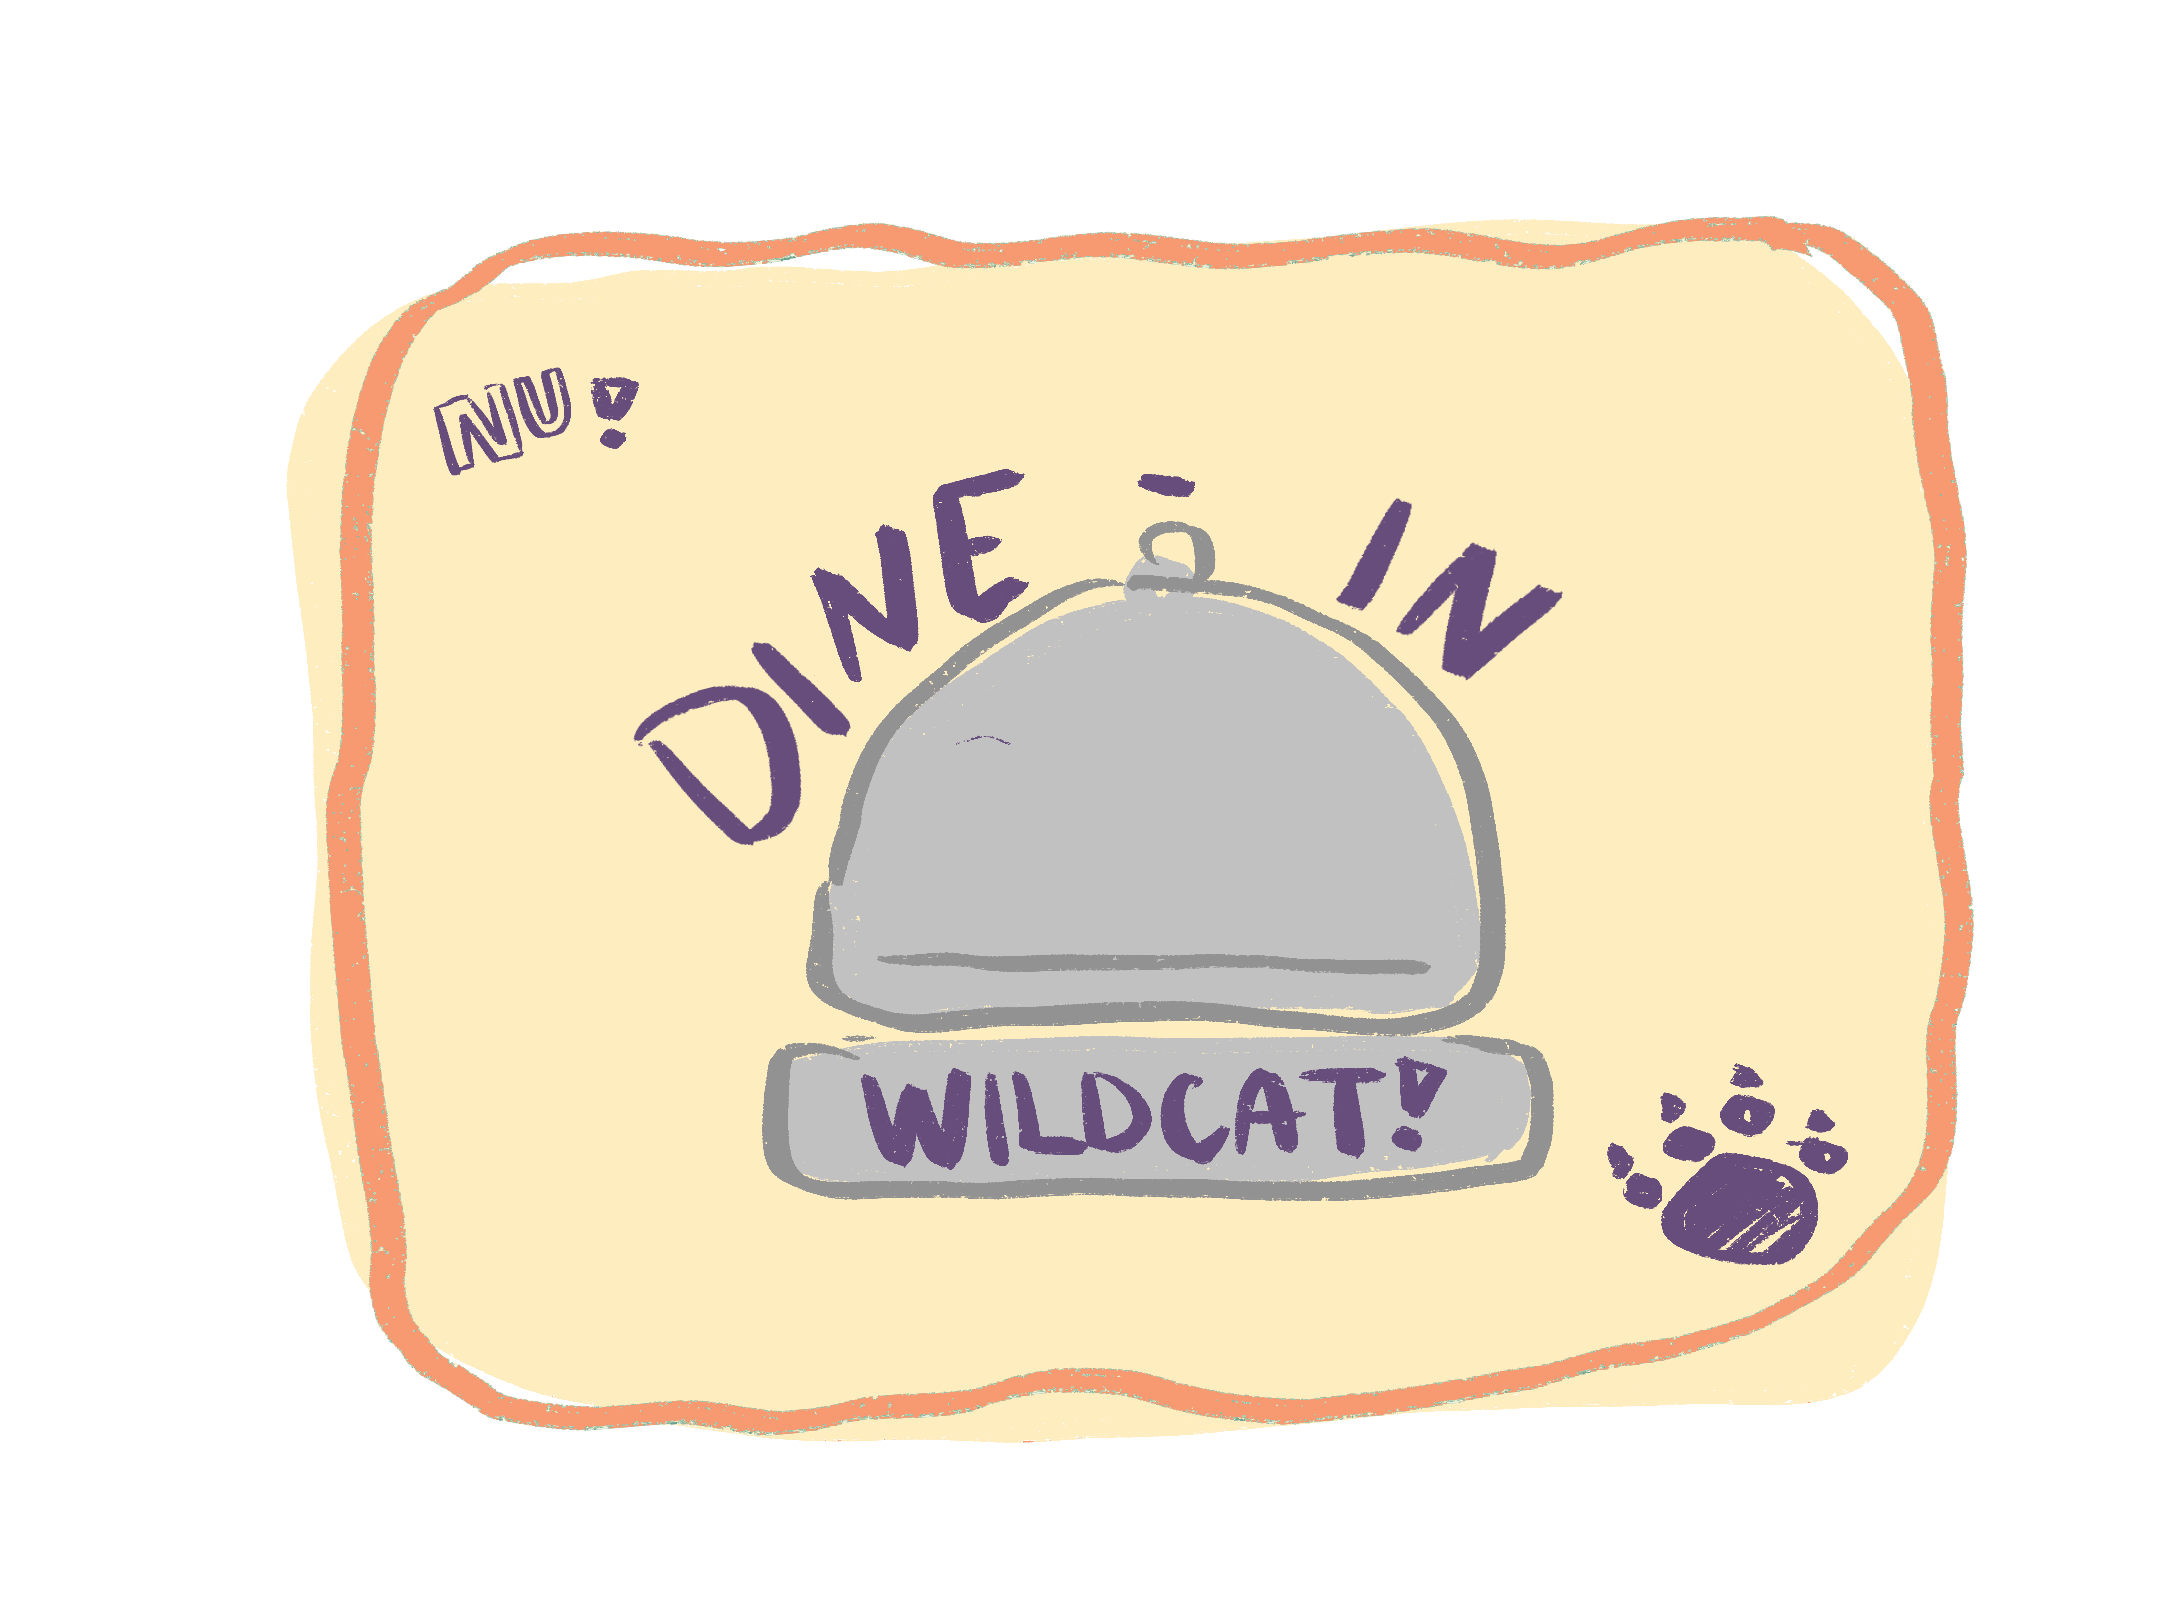 NU!
DINE - IN
WILDCAT!